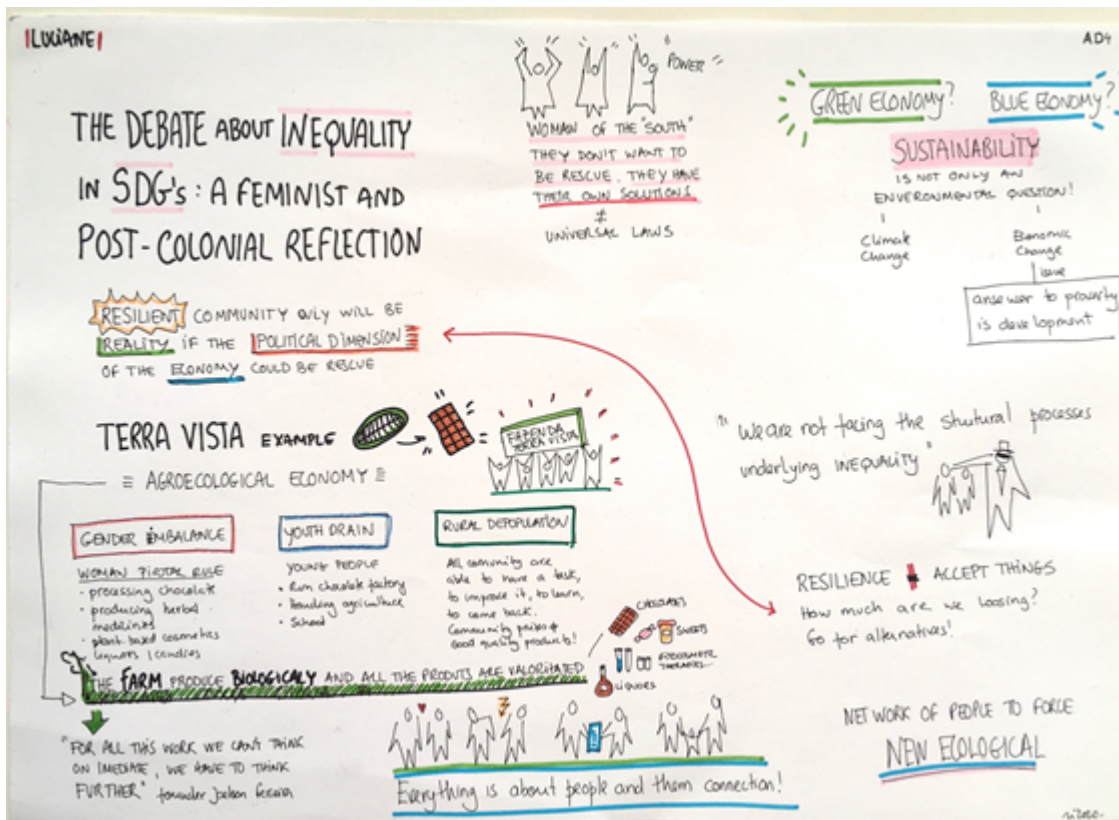 LUCIANE
AD4
THE DEBATE ABOUT INEQUALITY
IN SDG's: A FEMINIST AND
POST-COLONIAL REFLECTION
"POWER"
WOMAN OF THE "SOUTH"
THEY DON'T WANT TO
BE RESCUE. THEY HAVE
THEIR OWN SOLUTIONS
≠
UNIVERSAL LAWS
GREEN ECONOMY?
BLUE ECONOMY?
SUSTAINABILITY
IS NOT ONLY AN
ENVERONMENTAL QUESTION!
Climate
Change
Economic
Change
issue
answer to
is development
RESILIENT COMMUNITY ONLY WILL BE
REALITY IF THE POLITICAL DIMENSION
OF THE ECONOMY COULD BE RESCUE
TERRA VISTA EXAMPLE
FAZENDA
TERRA VISTA
≡ AGROECOLOGICAL ECONOMY ≡
GENDER IMBALANCE
WOMAN PIVOTAL
• processing chocolate
• producing herbal
medicines
• plant based cosmetics
liquors / candies
YOUTH DRAIN
YOUNG PEOPLE
• Run chocolate factory
• agriculture
• School
RURAL DEPOPULATION
All community are
able to have a task,
to improve it, to learn,
to come back.
Community
Good quality products!
CHOCOLATES
SWEETS
LIQUORS
THE FARM PRODUCE BIOLOGICALY AND ALL THE PRODUTS ARE VALORITATED
"FOR ALL THIS WORK WE CAN'T THINK
ON IMEDIATE, WE HAVE TO THINK
FURTHER" founder
Everything is about people and them connection!
"We are not facing the shutural processes
underlying INEQUALITY"
RESILIENCE ≠ ACCEPT THINGS
How much are we loosing?
Go for alternatives!
NETWORK OF PEOPLE TO FORCE
NEW ECOLOGICAL